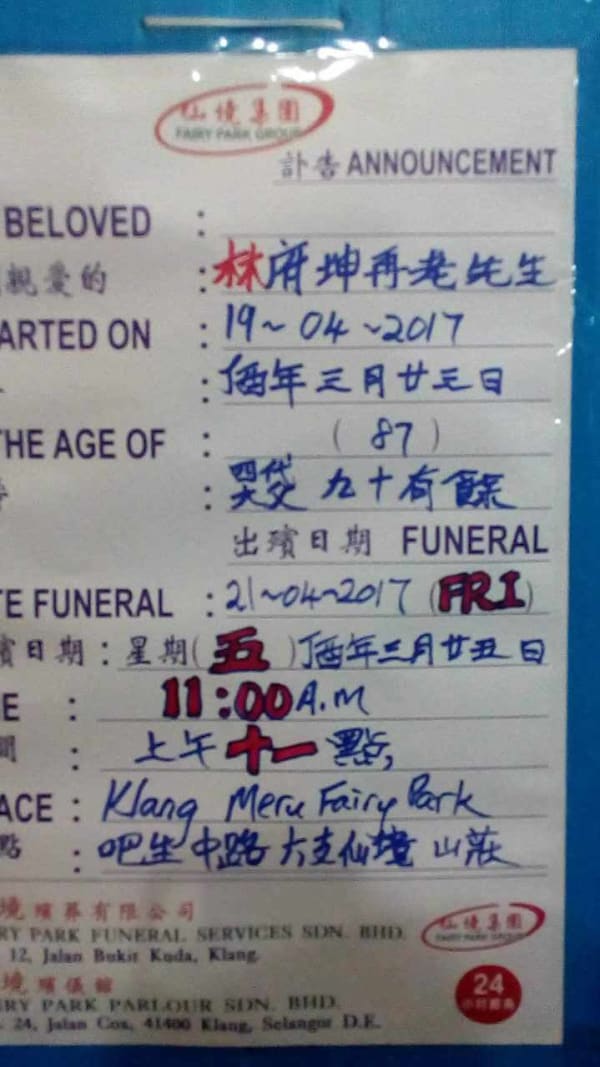 仙境集團
FAIRY PARK GROUP
訃告 ANNOUNCEMENT
BELOVED :
親愛的 : 林府坤再老先生
ARTED ON : 19~04~2017
: 丁酉年三月廿三日
THE AGE OF : (87)
: 四代大父 九十有餘
出殯日期 FUNERAL
TE FUNERAL : 21~04~2017 (FRI)
殯日期 : 星期(五)丁酉年三月廿五日
E : 11:00A.M
間 : 上午十一點,
ACE : Klang Meru Fairy Park
點 : 吧生中路六支仙境山莊
境殯葬有限公司
RY PARK FUNERAL SERVICES SDN. BHD.
12, Jalan Bukit Kuda, Klang.
境殯儀館
IRY PARK PARLOUR SDN. BHD.
24, Jalan Coa, 41400 Klang, Selangor D.E.
仙境集團
FAIRY PARK GROUP
24
小时服务